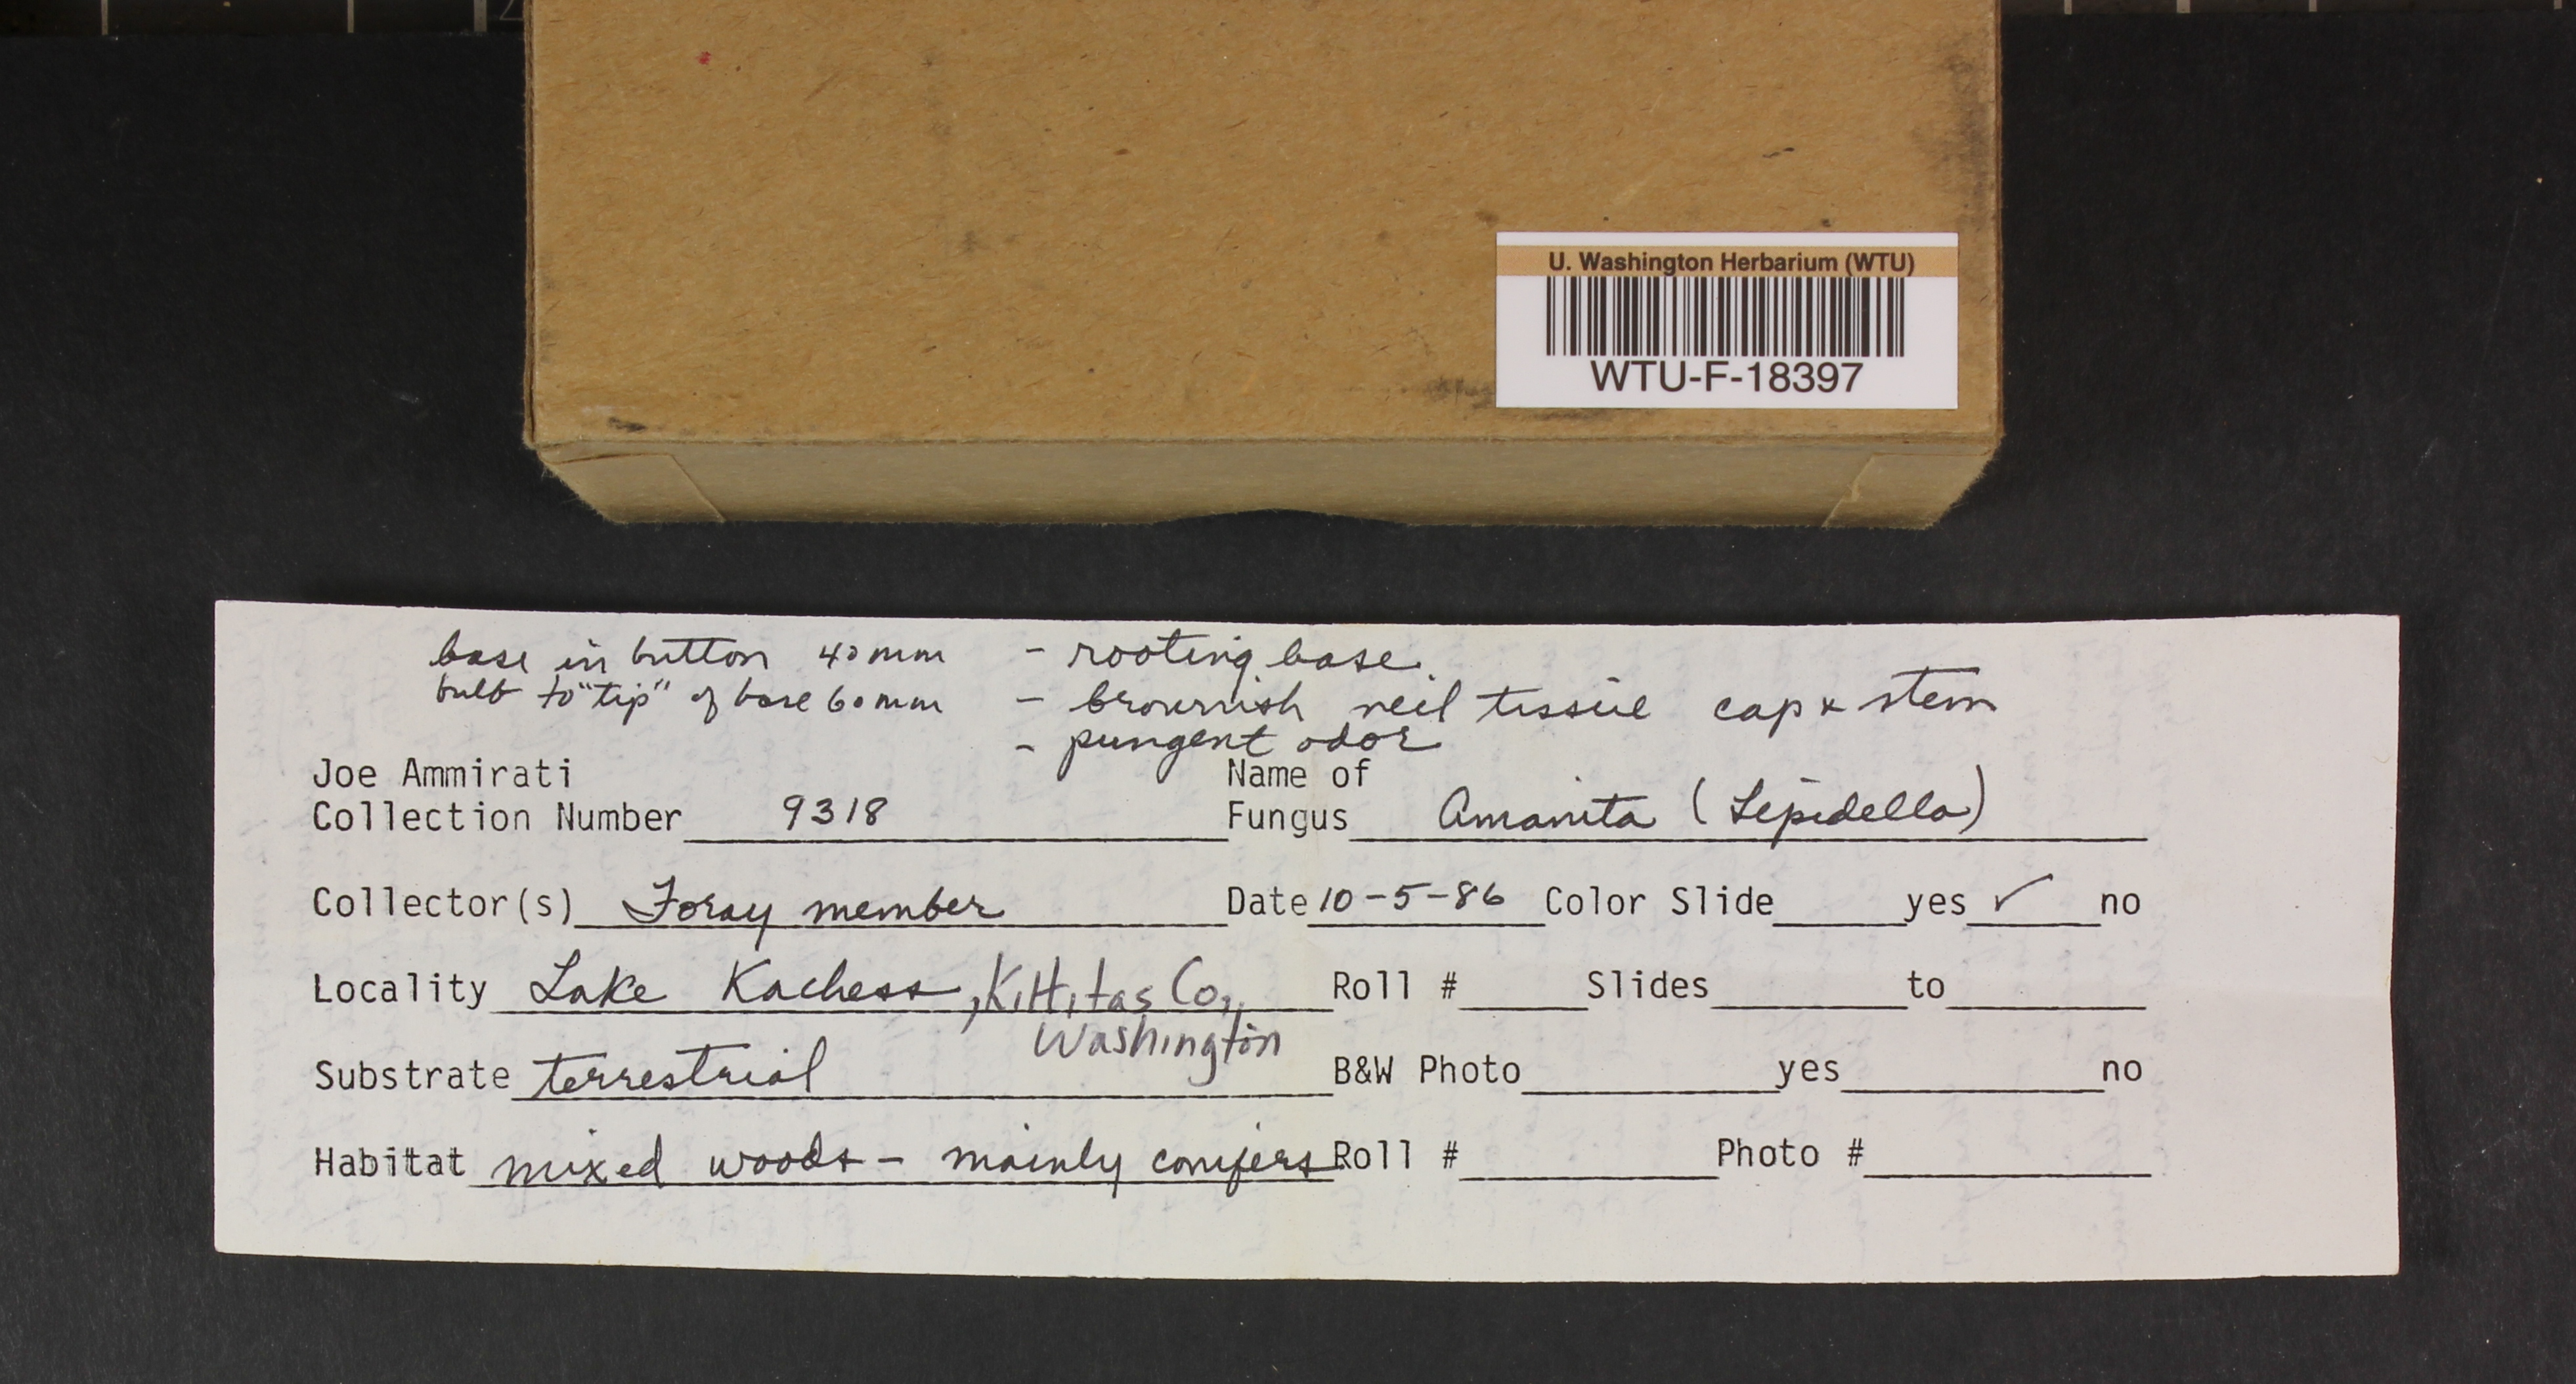 U. Washington Herbarium (WTU)
WTU-F-18397
base in button 40 mm - rooting base.
bulb to "tip" of base 60 mm - brownish veil tissue cap & stem
- pungent odor
Joe Ammirati Name of
Collection Number 9318 Fungus Amanita (Lepidella)
Collector(s) Foray member Date 10-5-86 Color Slide yes ✓ no
Locality Lake Kachess, Kittitas Co., Roll # Slides to
Washington
Substrate terrestrial B&W Photo yes no
Habitat mixed woods - mainly conifers Roll # Photo #